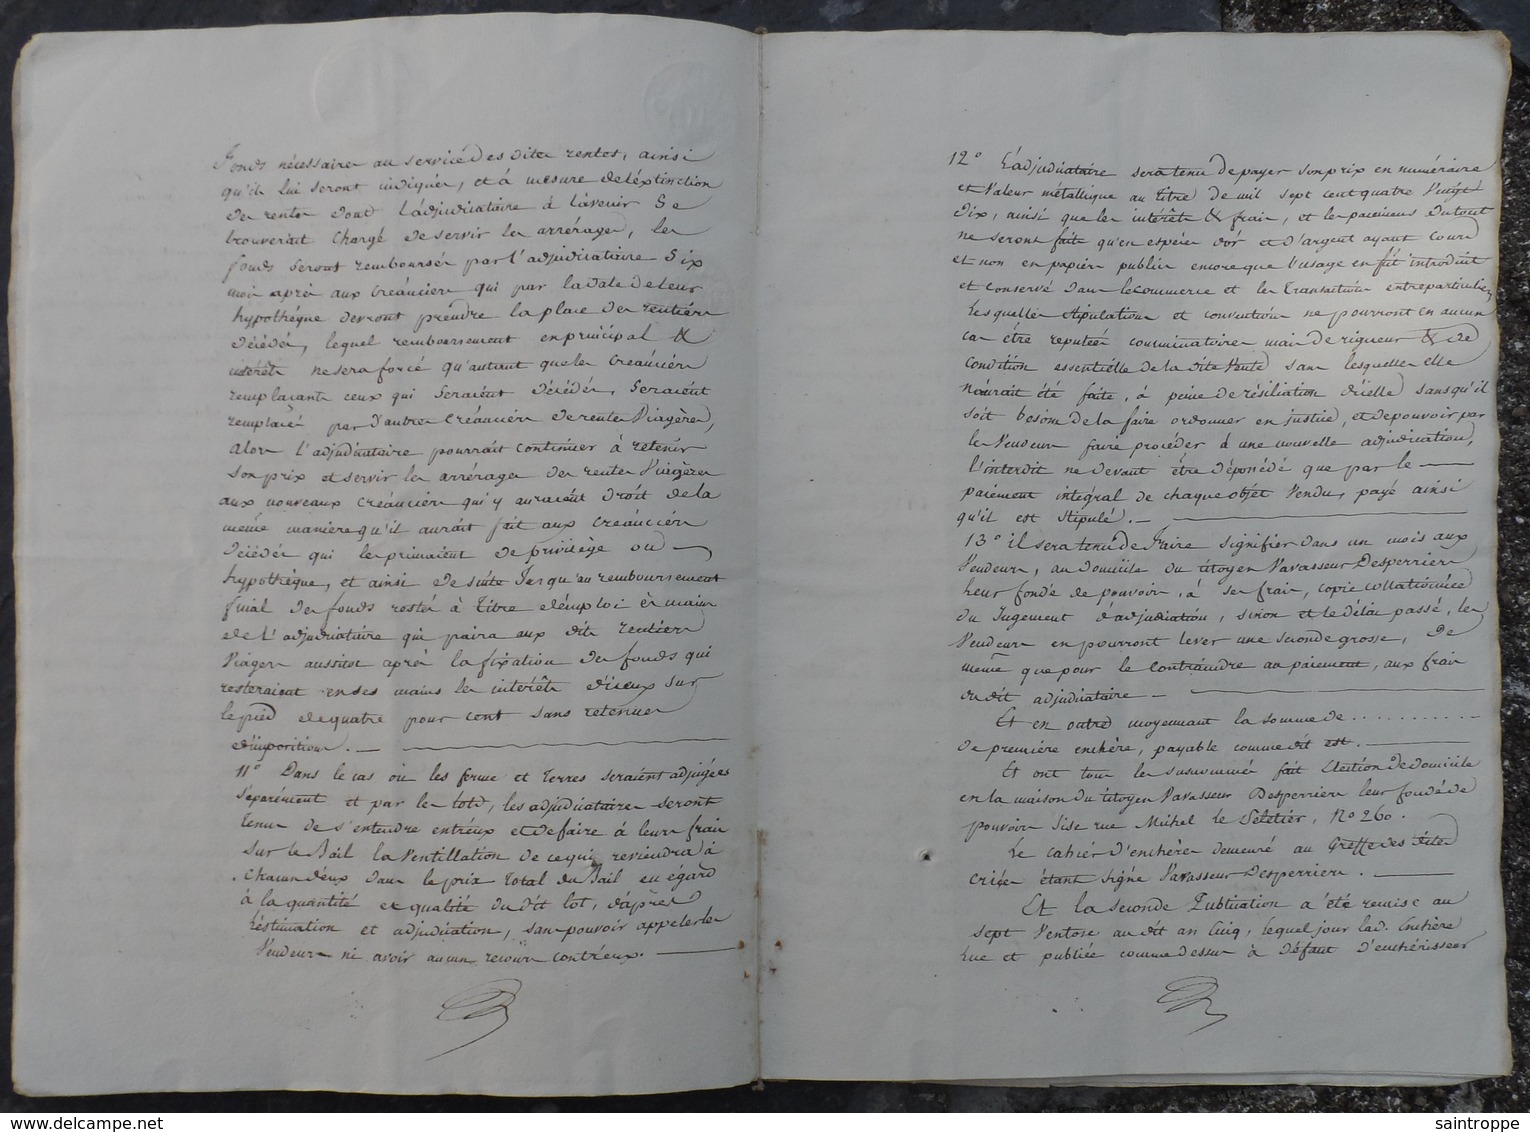 fonds nécessaires au service des dites rentes, ainsi
qu'ils lui seront indiqués, et à mesure de l'éxtinction
des rentes dont l'adjudicataire à l'avenir se
trouverait chargé de servir les arrérages, les
fonds seront remboursés par l'adjudicataire six
mois après aux créanciers qui par la date de leurs
hypothèque devront prendre la place des rentiers
décédés, lequel remboursement en principal &
intérêts ne sera forcé qu'autant que les créanciers
remplacants ceux qui seraient décédés, seraient
remplacés par d'autres créanciers de rentes viagères,
alors l'adjudicataire pourrait continuer à retenir
son prix et servir les arrérages des rentes viagères
aux nouveaux créanciers qui y auraient droit de la
même manière qu'il aurait fait aux créanciers
décédés qui les primaient de privilège ou
hypothèque, et ainsi de suite jusqu'au remboursement
final des fonds restés à titre d'emploi ès mains
de l'adjudicataire qui paira aux dits rentiers
viagers aussitot après la fixation des fonds qui
resteraient en ses mains les intérêts d'iceux sur
le pied de quatre pour cent sans retenues
d'impositions. —
11° Dans le cas où les ferme et terres seraient adjugées
séparément et par les lots, les adjudicataires seront
tenus de s'entendre entr'eux et de faire à leurs frais
sur le Bail la ventillation de ce qui reviendra à
chacun d'eux dans le prix total du Bail eu égard
à la quantité et qualité du dit lot, d'après
l'estimation et adjudication, sans pouvoir appeler les
vendeurs ni avoir aucun recours contr'eux. —
12° L'adjudicataire sera tenu de payer son prix en numéraire
et valeur métallique au titre de mil sept cent quatre vingt
dix, ainsi que les intérêts & frais, et les paiemens du tout
ne seront faits qu'en espèces d'or et d'argent ayant cours
et non en papiers publics encore que l'usage en fût introduit
et conservé dans le commerce et les transactions entre particuliers
lesquelles stipulations et conventions ne pourront en aucun
cas être reputées comminatoires mais de rigueur & de
condition essentielle de la dite vente sans lesquelles elle
n'aurait été faite, à peine de résiliation d'icelle sans qu'il
soit besoin de la faire ordonner en justice, et de pouvoir par
les vendeurs faire procéder à une nouvelle adjudication,
l'interdit ne devant être dépossédé que par le —
paiement intégral de chaque objet vendu, payé ainsi
qu'il est stipulé. —
13° il sera tenu de faire signifier dans un mois aux
vendeurs, au domicile du citoyen Vavasseur Desperriers
leur fondé de pouvoir, à ses frais, copie collationnée
du jugement d'adjudication, sinon et le délai passé, les
vendeurs en pourront lever une seconde grosse, de
même que pour le contraindre au paiement, aux frais
du dit adjudicataire —
Et en outre moyennant la somme de ..........
de première enchère, payable comme dit est. —
Et ont tous les susnommés fait élection de domicile
en la maison du citoyen Vavasseur Desperriers leur fondé de
pouvoir sise rue Michel le Peletier, N° 260.
Le cahier d'enchère demeuré au Greffe des dites
criées étant signé Vavasseur Desperriers. —
Et la seconde Publication a été remise au
sept Ventose au dit an cinq, lequel jour lad. Enchère
lue et publiée comme dessus à défaut d'enchérisseur
saintroppe